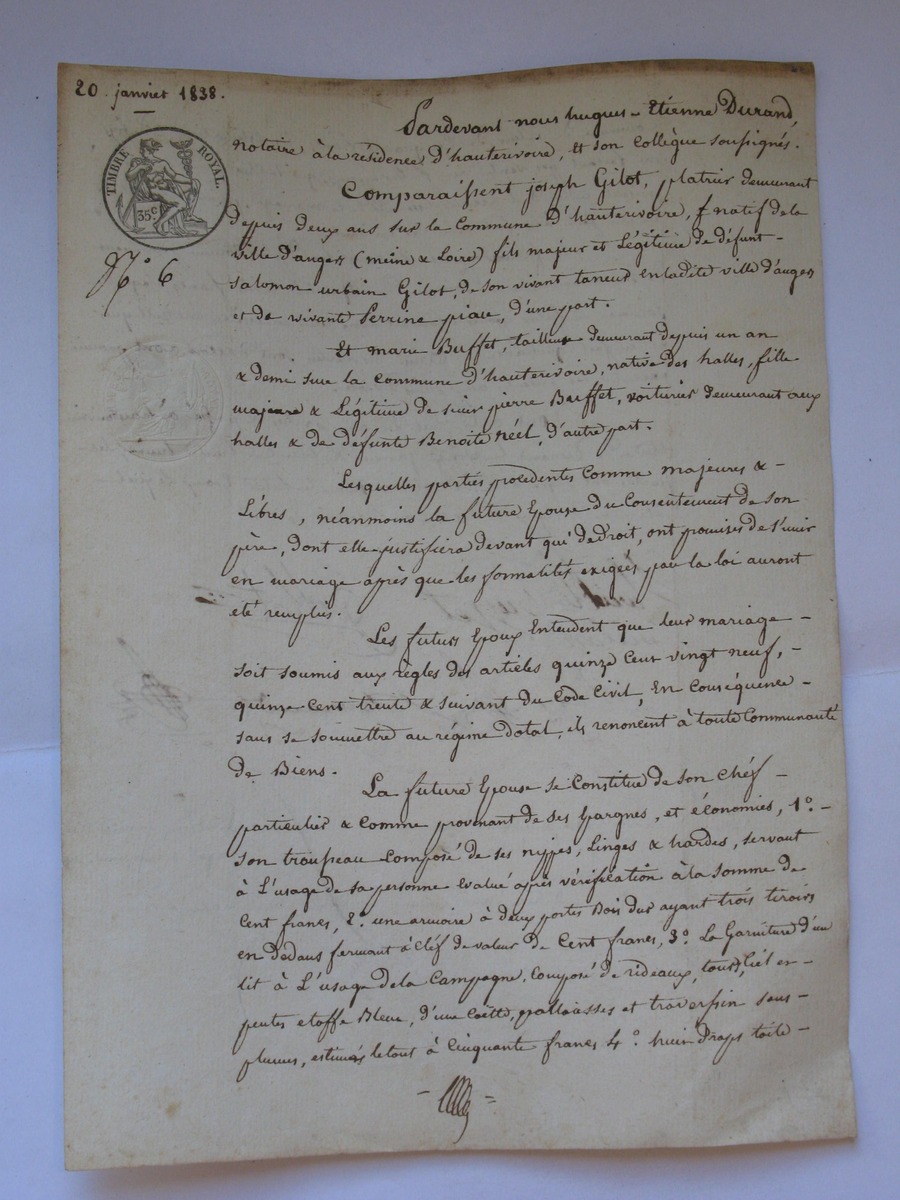 20. janvier 1838.
TIMBRE ROYAL.
35c
N° 6
Pardevant nous hugues-Etienne Durand,
notaire à la résidence d'hauterivoire, et son collègue soussignés.
Comparaissent joseph Gilot, platrier demeurant
depuis deux ans sur la Commune d'hauterivoire, natif de la
ville d'angers (meine & Loire) fils majeur et Légitime de défunt
salomon urbain Gilot, de son vivant taneur en ladite ville d'angers
et de vivante Perrine piau, d'une part.
Et marie Buffet, tailleuse demeurant depuis un an
& demi sur la commune d'hauterivoire, native des halles, fille
majeure & Légitime de sieur pierre Buffet, voiturier demeurant aux
halles & de défunte Benoite Réel, d'autre part.
Lesquelles parties procedentes Comme majeures &
Libres, néanmoins la future Epouse du Consentement de son
père, dont elle justifiera devant qui de droit, ont promises de s'unir
en mariage après que les formalités exigées par la loi auront
été remplies.
Les futurs Epoux Entendent que leur mariage
soit soumis aux règles des articles quinze Cent vingt neuf,
quinze Cent trente & suivant du Code Civil, En Conséquence
sans se soumettre au régime Dotal, ils renoncent à toute Communauté
de Biens.
La future Epouse se Constitue de son Chéf
particulier & Comme provenant de ses Epargnes, et économies, 1°.
son trousseau composé de ses nippes, Linges & hardes, servant
à L'usage de sa personne Evalué après vérification à la somme de
Cent francs, 2°. une armoire à deux portes Bois dur ayant trois tiroirs
en dédans fermant à Cléf de valeur de Cent francs, 3°. La Garniture d'un
lit à L'usage de la Campagne, Composé de rideaux, tours, Ciél en
pentes etoffe Bleue, d'une Coëtte, pallasses et traversin sans
plumes, estimés le tout à Cinquante francs 4°. huit Draps toile